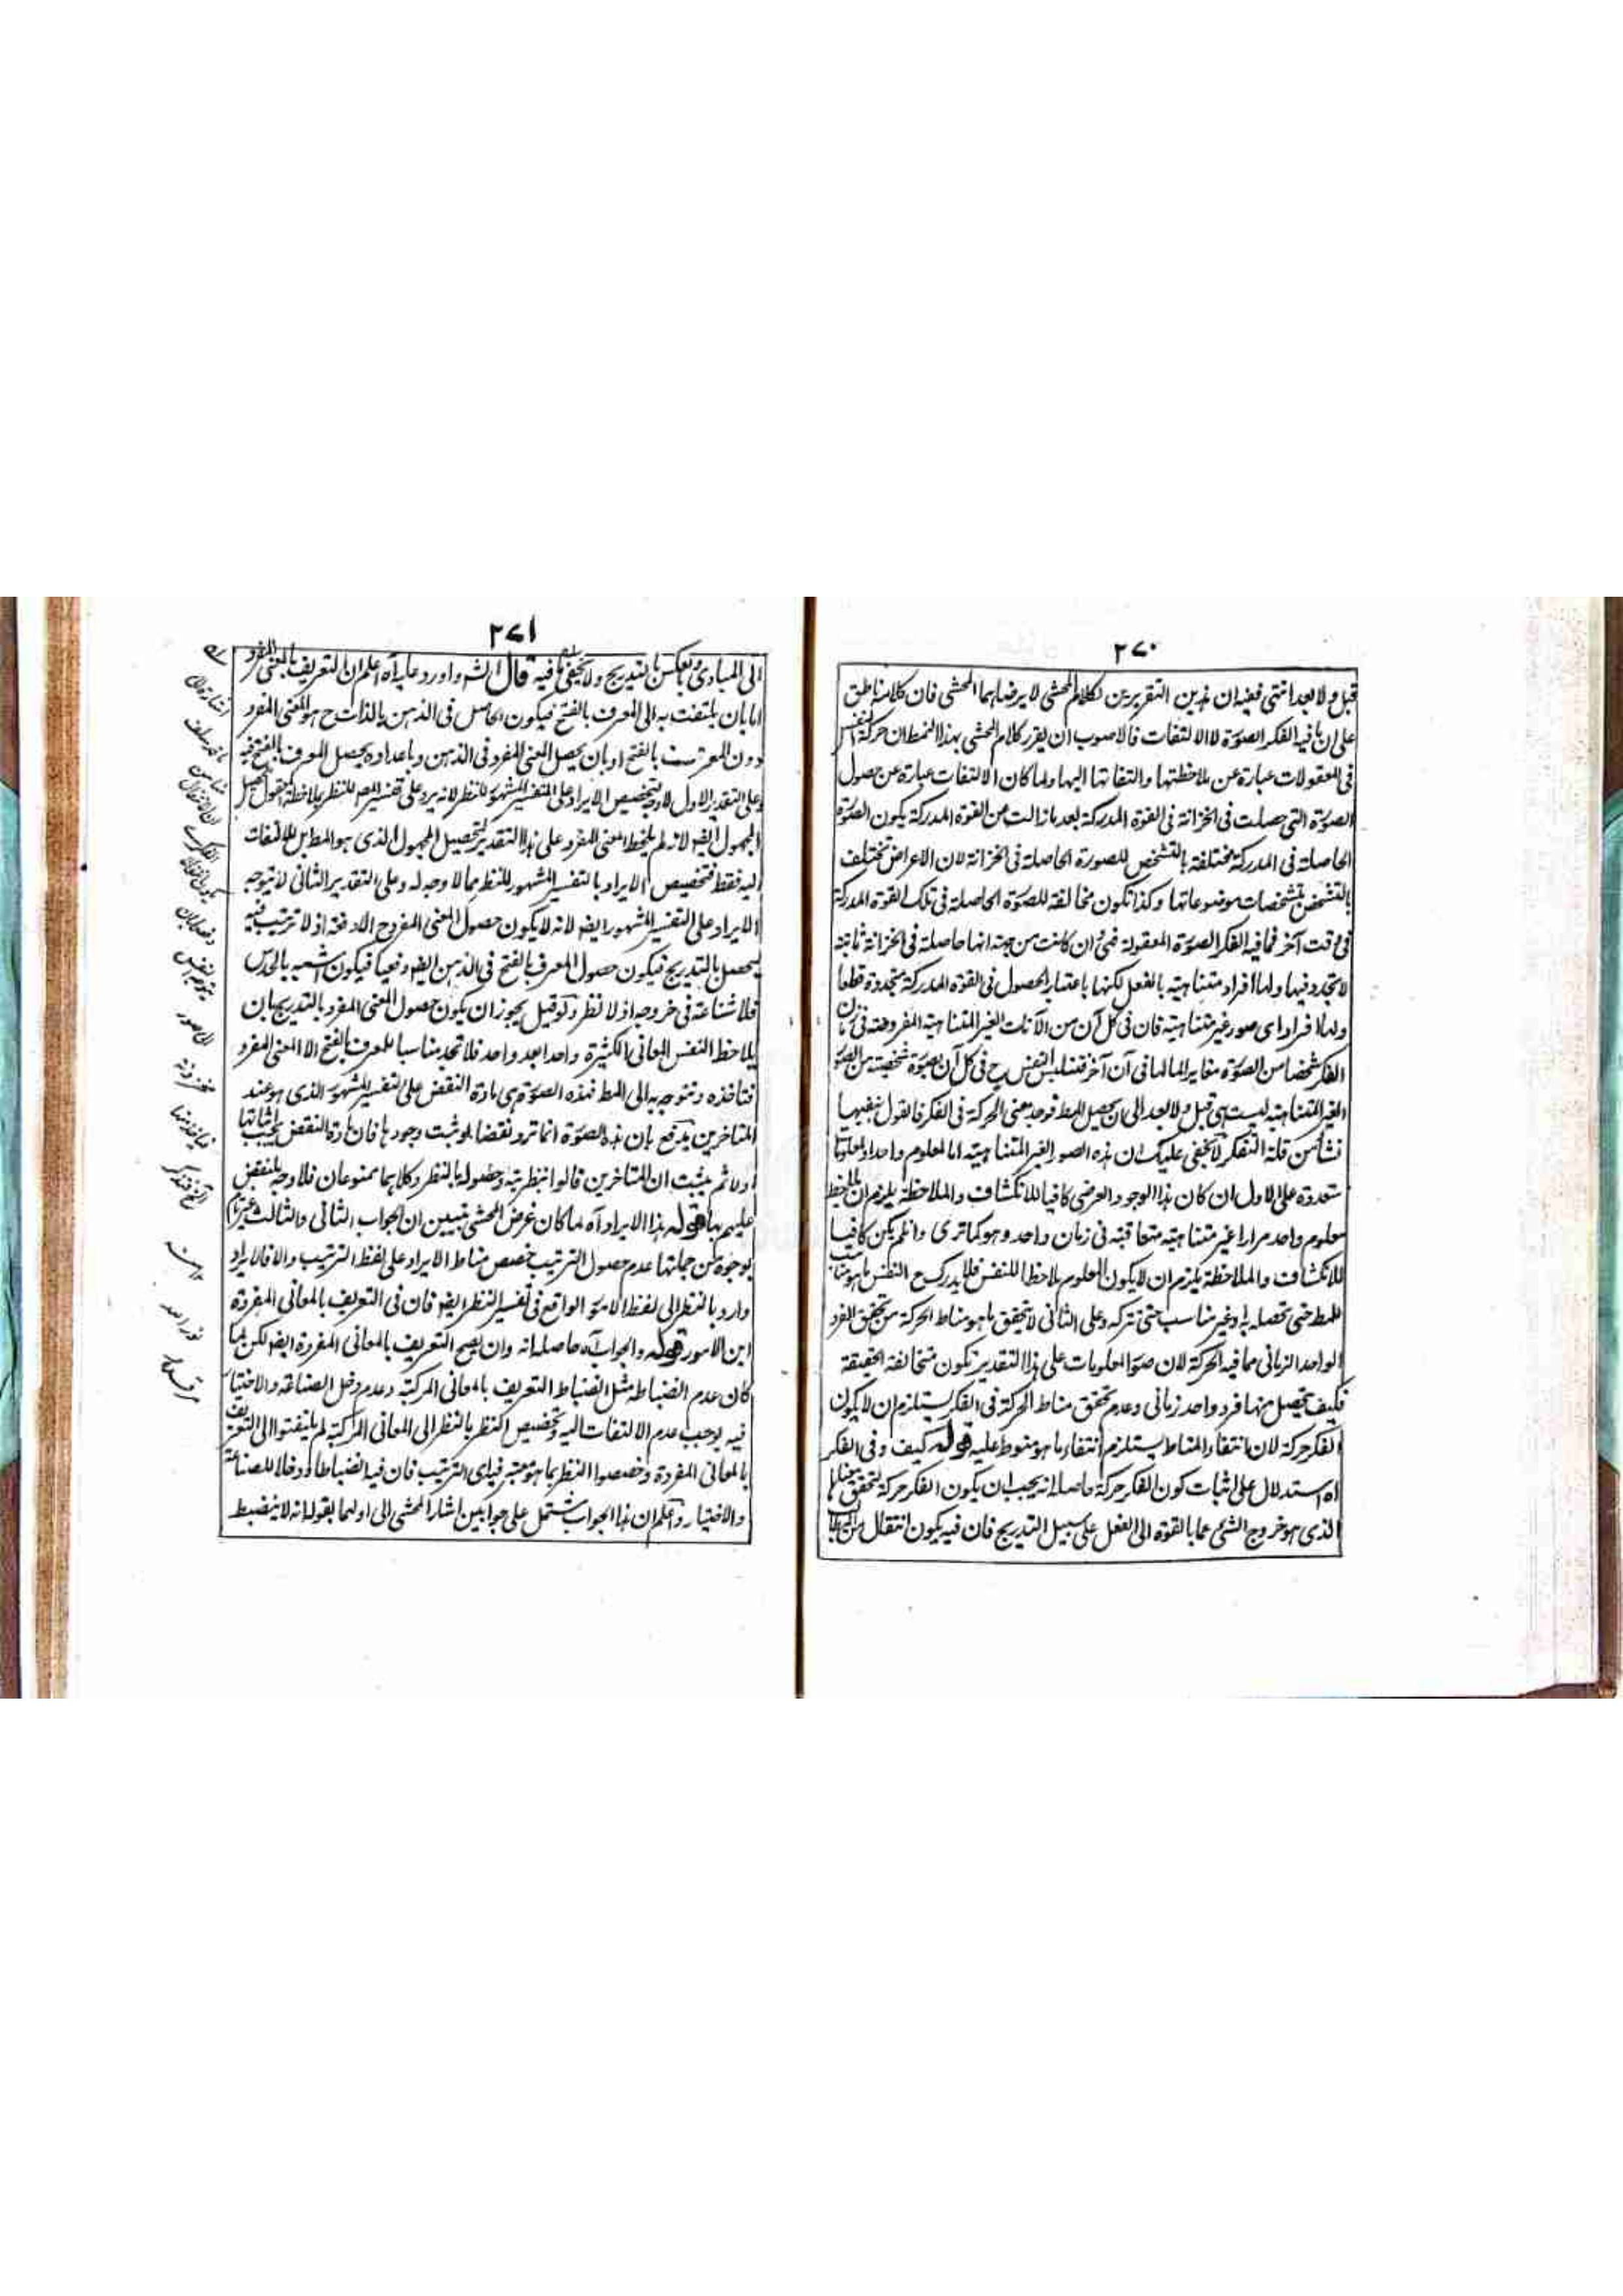 ٢٧٠
قبل ولا بعد انتهى ففيه ان هذين التقريرين لكلام المحشى لا يرضا بهما المحشى فان كلامه ناطق
على ان ما فيه الفكر الصورة لا الالتفات فالاصوب ان يقرر كلام المحشى بهذا النمط ان حركة النفس
فى المعقولات عبارة عن ملاحظتها والتفاتها اليها ولما كان الالتفات عبارة عن حصول
الصورة التى حصلت فى الخزانة فى القوة المدركة بعد ما زالت من القوة المدركة يكون الصورة
الحاصلة فى المدركة مختلفة بالتشخص للصورة الحاصلة فى الخزانة لان الاعراض تختلف
بالتشخص بتشخصات موضوعاتها وكذا تكون مخالفة للصورة الحاصلة فى تلك القوة المدركة
فى وقت آخر فما فيه الفكر الصورة المعقولة فهى وان كانت من جهة انها حاصلة فى الخزانة ثابتة
لا تجدد فيها ولها افراد متناهية بالفعل لكنها باعتبار الحصول فى القوة المدركة متجددة قطعا
ولها افراد اى صور غير متناهية فان فى كل آن من الآنات الغير المتناهية المفروضة فى زمان
الفكر شخصا من الصورة مغايرا لما لها فى آن آخر فتتلبس النفس ح فى كل آن بصورة شخصية من الصور
الغير المتناهية ليست هى قبل ولا بعد الى ان يحصل المط فوجد معنى الحركة فى الفكر فالقول بنفيها
نشأ من قلة التفكر لا يخفى عليك ان هذه الصور الغير المتناهية اما لمعلوم واحد او لمعلومات
متعددة على الاول ان كان هذا الوجود العرضى كافيا للانكشاف والملاحظة يلزم ان يلاحظ
معلوم واحد مرارا غير متناهية متعاقبة فى زمان واحد وهو كما ترى وان لم يكن كافيا
للانكشاف والملاحظة يلزم ان لا يكون المعلوم ملاحظا للنفس فلا يدرك ح النفس ما هو مناسب
للمط حتى تحصله به وغير مناسب حتى تتركه وعلى الثانى لا يتحقق ما هو مناط الحركة من تحقق الفرد
الواحد الزمانى مما فيه الحركة لان صور المعلومات على هذا التقدير تكون متخالفة الحقيقة
فكيف يحصل منها فرد واحد زمانى وعدم تحقق مناط الحركة فى الفكر يستلزم ان لا يكون
الفكر حركة لان انتفاء المناط يستلزم انتفاء ما هو منوط عليه قوله كيف وفى الفكر
اه استدلال على اثبات كون الفكر حركة حاصله انه يجب ان يكون الفكر حركة لتحقق معناها
الذى هو خروج الشئ عما بالقوة الى الفعل على سبيل التدريج فان فيه يكون انتقال من المطالب
٢٧١
الى المبادى وبالعكس بالتدريج ولا يخفى ما فيه قال الشه واورد عليه آه اعلم ان التعريف بالمعنى المفرد
اما بان يلتفت به الى المعرف بالفتح فيكون الحاصل فى الذهن بالذات ح هو المعنى المفرد
دون المعرف بالفتح او بان يحصل المعنى المفرد فى الذهن وباعداده يحصل المعرف بالفتح فيه
وعلى التقدير الاول لا وجه لتخصيص الايراد على التفسير المشهور للنظر لانه يرد على تفسير المصر للنظر بملاحظة المعقول لتحصيل
المجهول ايضا لانه لم يلاحظ المعنى المفرد على هذا التقدير لتحصيل المجهول الذى هو المط بل للالتفات
اليه فقط فتخصيص الايراد بالتفسير المشهور للنظر مما لا وجه له وعلى التقدير الثانى لا يتوجه
الايراد على التفسير المشهور ايضا لانه لا يكون حصول المعنى المفرد ح الا دفعة اذ لا ترتيب فيه
ليحصل بالتدريج فيكون حصول المعرف بالفتح فى الذهن ايضا دفعيا فيكون اشبه بالحدس
فلا شناعة فى خروجه اذ لا نظر ولو قيل يجوز ان يكون حصول المعنى المفرد بالتدريج بان
يلاحظ النفس المعانى الكثيرة واحدا بعد واحد فلا تجد مناسبا للمعرف بالفتح الا المعنى المفرد
فتاخذه وتتوجه به الى المط فهذه الصورة هى مادة النقض على التفسير المشهور الذى هو عند
المتاخرين يدفع بان هذه الصورة انما ترد نقضا لو ثبت وجودها فان مادة النقض يجب اثباتها
اولا ثم يثبت ان المتاخرين قالوا بنظريته وحصوله بالنظر وكلاهما ممنوعان فلا وجه للنقض
عليهم بها قوله هذا الايراد آه لما كان غرض المحشى تبيين ان الجواب الثانى والثالث غير تام
بوجوه من جملتها عدم حصول الترتيب خصص مناط الايراد على لفظ الترتيب والا فالايراد
وارد بالنظر الى لفظ الامور الواقع فى تفسير النظر ايضا فان فى التعريف بالمعانى المفردة
اين الامور قوله والجواب آه حاصله انه وان يصح التعريف بالمعانى المفردة ايضا لكن لما
كان عدم انضباطه مثل انضباط التعريف بالمعانى المركبة وعدم دخل الصناعة والاختيار
فيه يوجب عدم الالتفات اليه وتخصيص النظر بالنظر الى المعانى المركبة لم يلتفتوا الى التعريف
بالمعانى المفردة وخصصوا النظر بما هو معتبر فيه اى الترتيب فان فيه انضباطا ودخلا للصناعة
والاختيار واعلم ان هذا الجواب يشتمل على جوابين اشار المحشى الى اولهما بقوله انه لا ينضبط